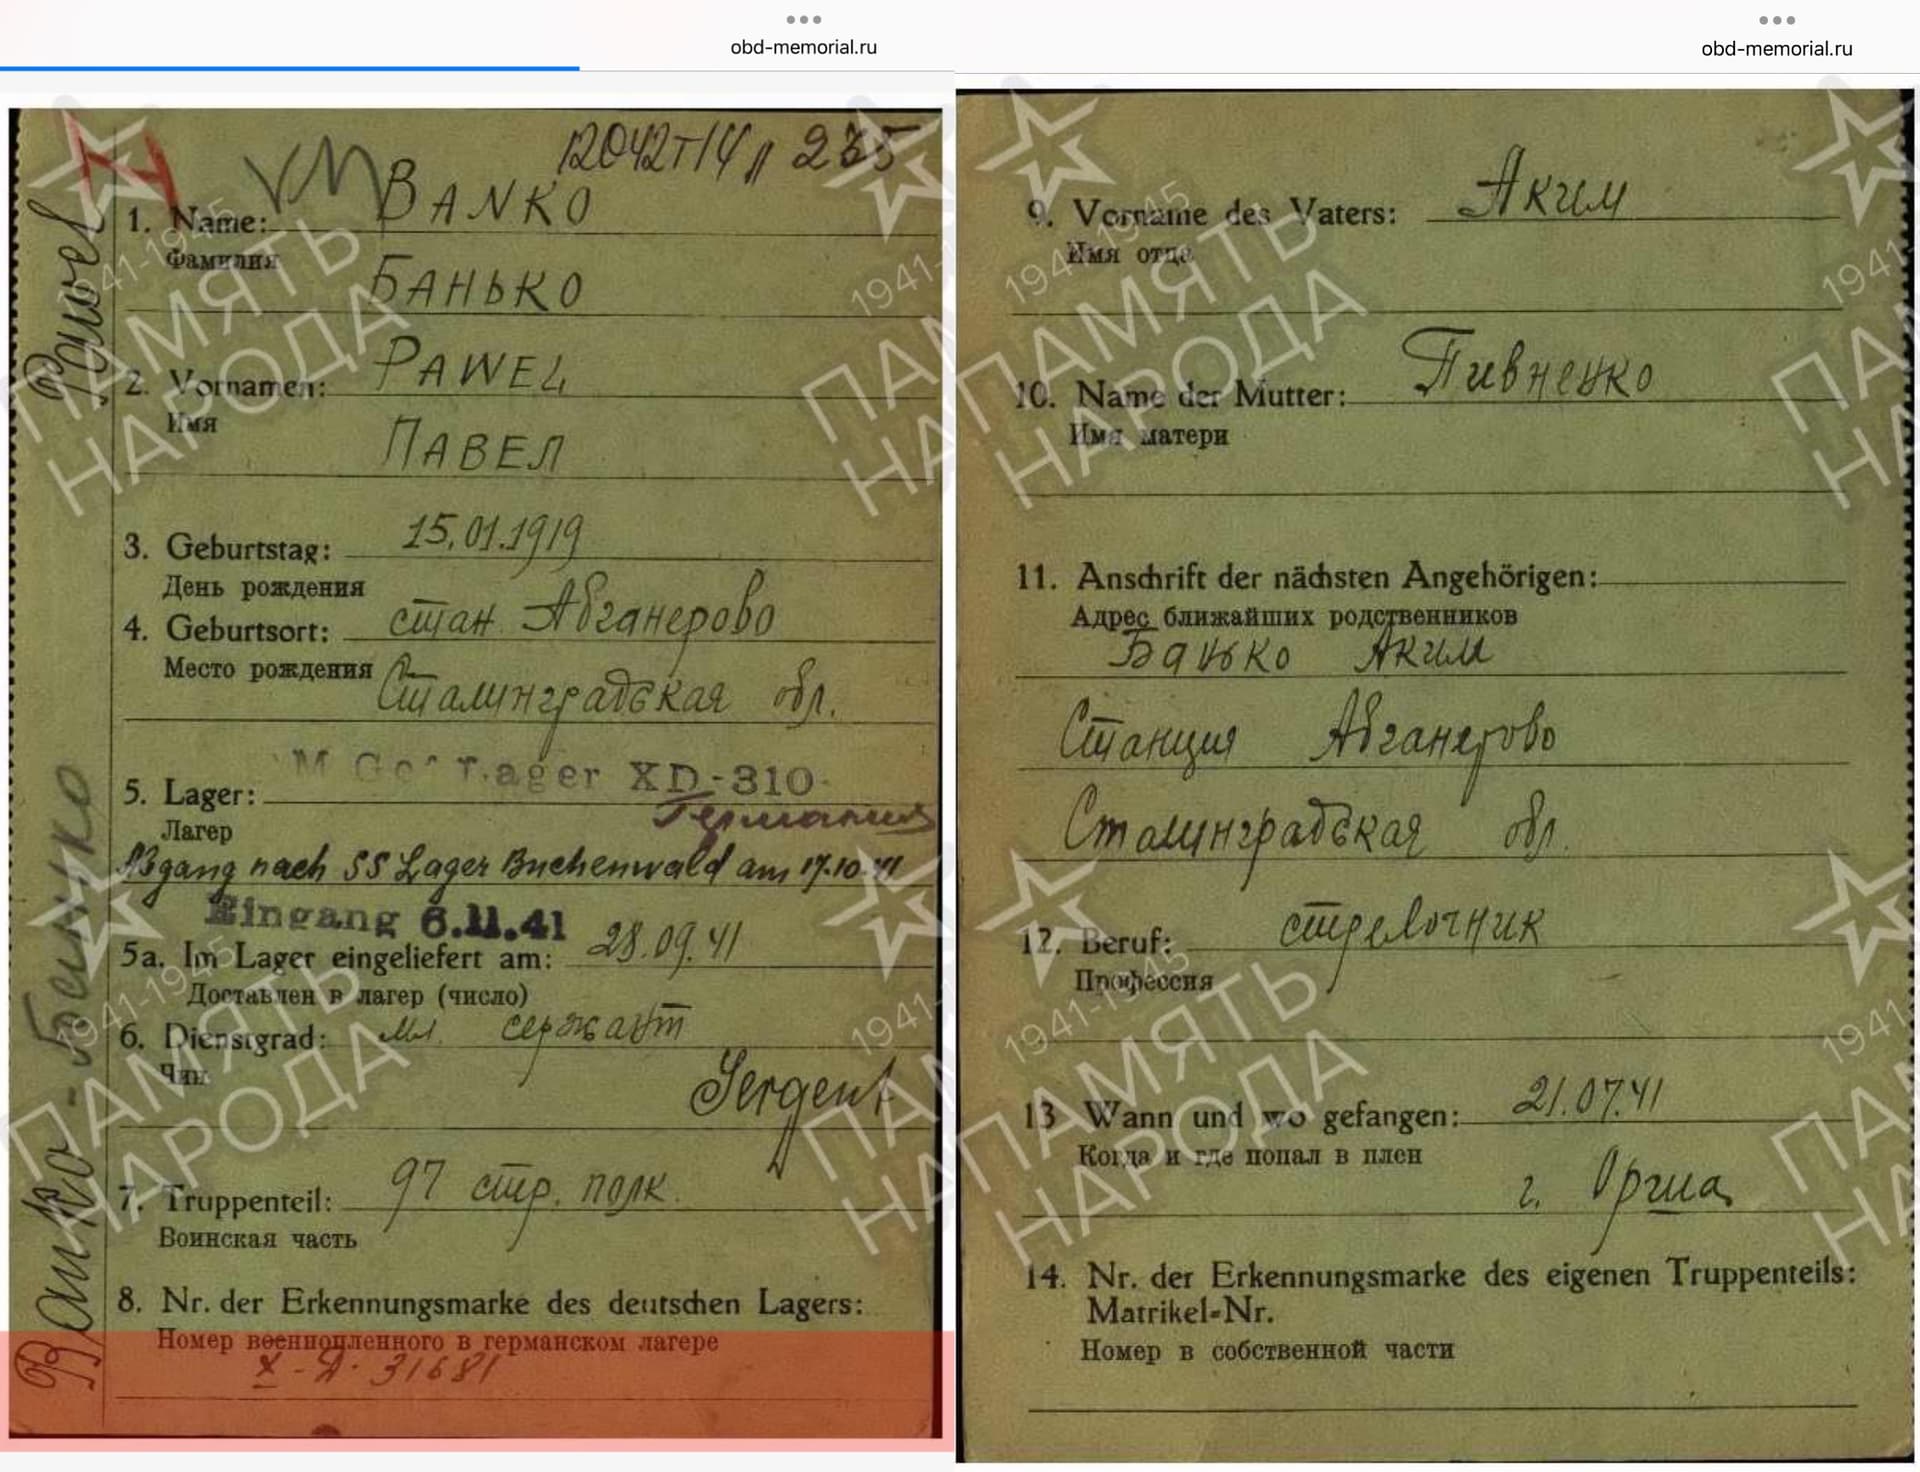 obd-memorial.ru
12042т14 л 235
VM
1. Name: BANKO
Фамилия
БАНЬКО
2. Vornamen: PAWEL
Имя
ПАВЕЛ
3. Geburtstag: 15.01.1919
День рождения
4. Geburtsort: стан. Абганерово
Место рождения
Сталинградская обл.
5. Lager: XD-310
Лагер
Германия
Abgang nach SS Lager Buchenwald am 17.10.41
Eingang 6.11.41
5a. Im Lager eingeliefert am: 28.09.41
Доставлен в лагер (число)
6. Dienstgrad: мл. сержант
Чин
Sergent
7. Truppenteil: 97 стр. полк.
Воинская часть
8. Nr. der Erkennungsmarke des deutschen Lagers:
Номер военнопленного в германском лагере
X-D. 31681
Banko - Pawel
obd-memorial.ru
9. Vorname des Vaters: Аким
Имя отца
10. Name der Mutter: Пивненко
Имя матери
11. Anschrift der nächsten Angehörigen:
Адрес ближайших родственников
Банько Аким
Станция Абганерово
Сталинградская обл.
12. Beruf: стрелочник
Профессия
13 Wann und wo gefangen: 21.07.41
Когда и где попал в плен
г. Орша
14. Nr. der Erkennungsmarke des eigenen Truppenteils:
Matrikel-Nr.
Номер в собственной части
1941-1945
ПАМЯТЬ
НАРОДА